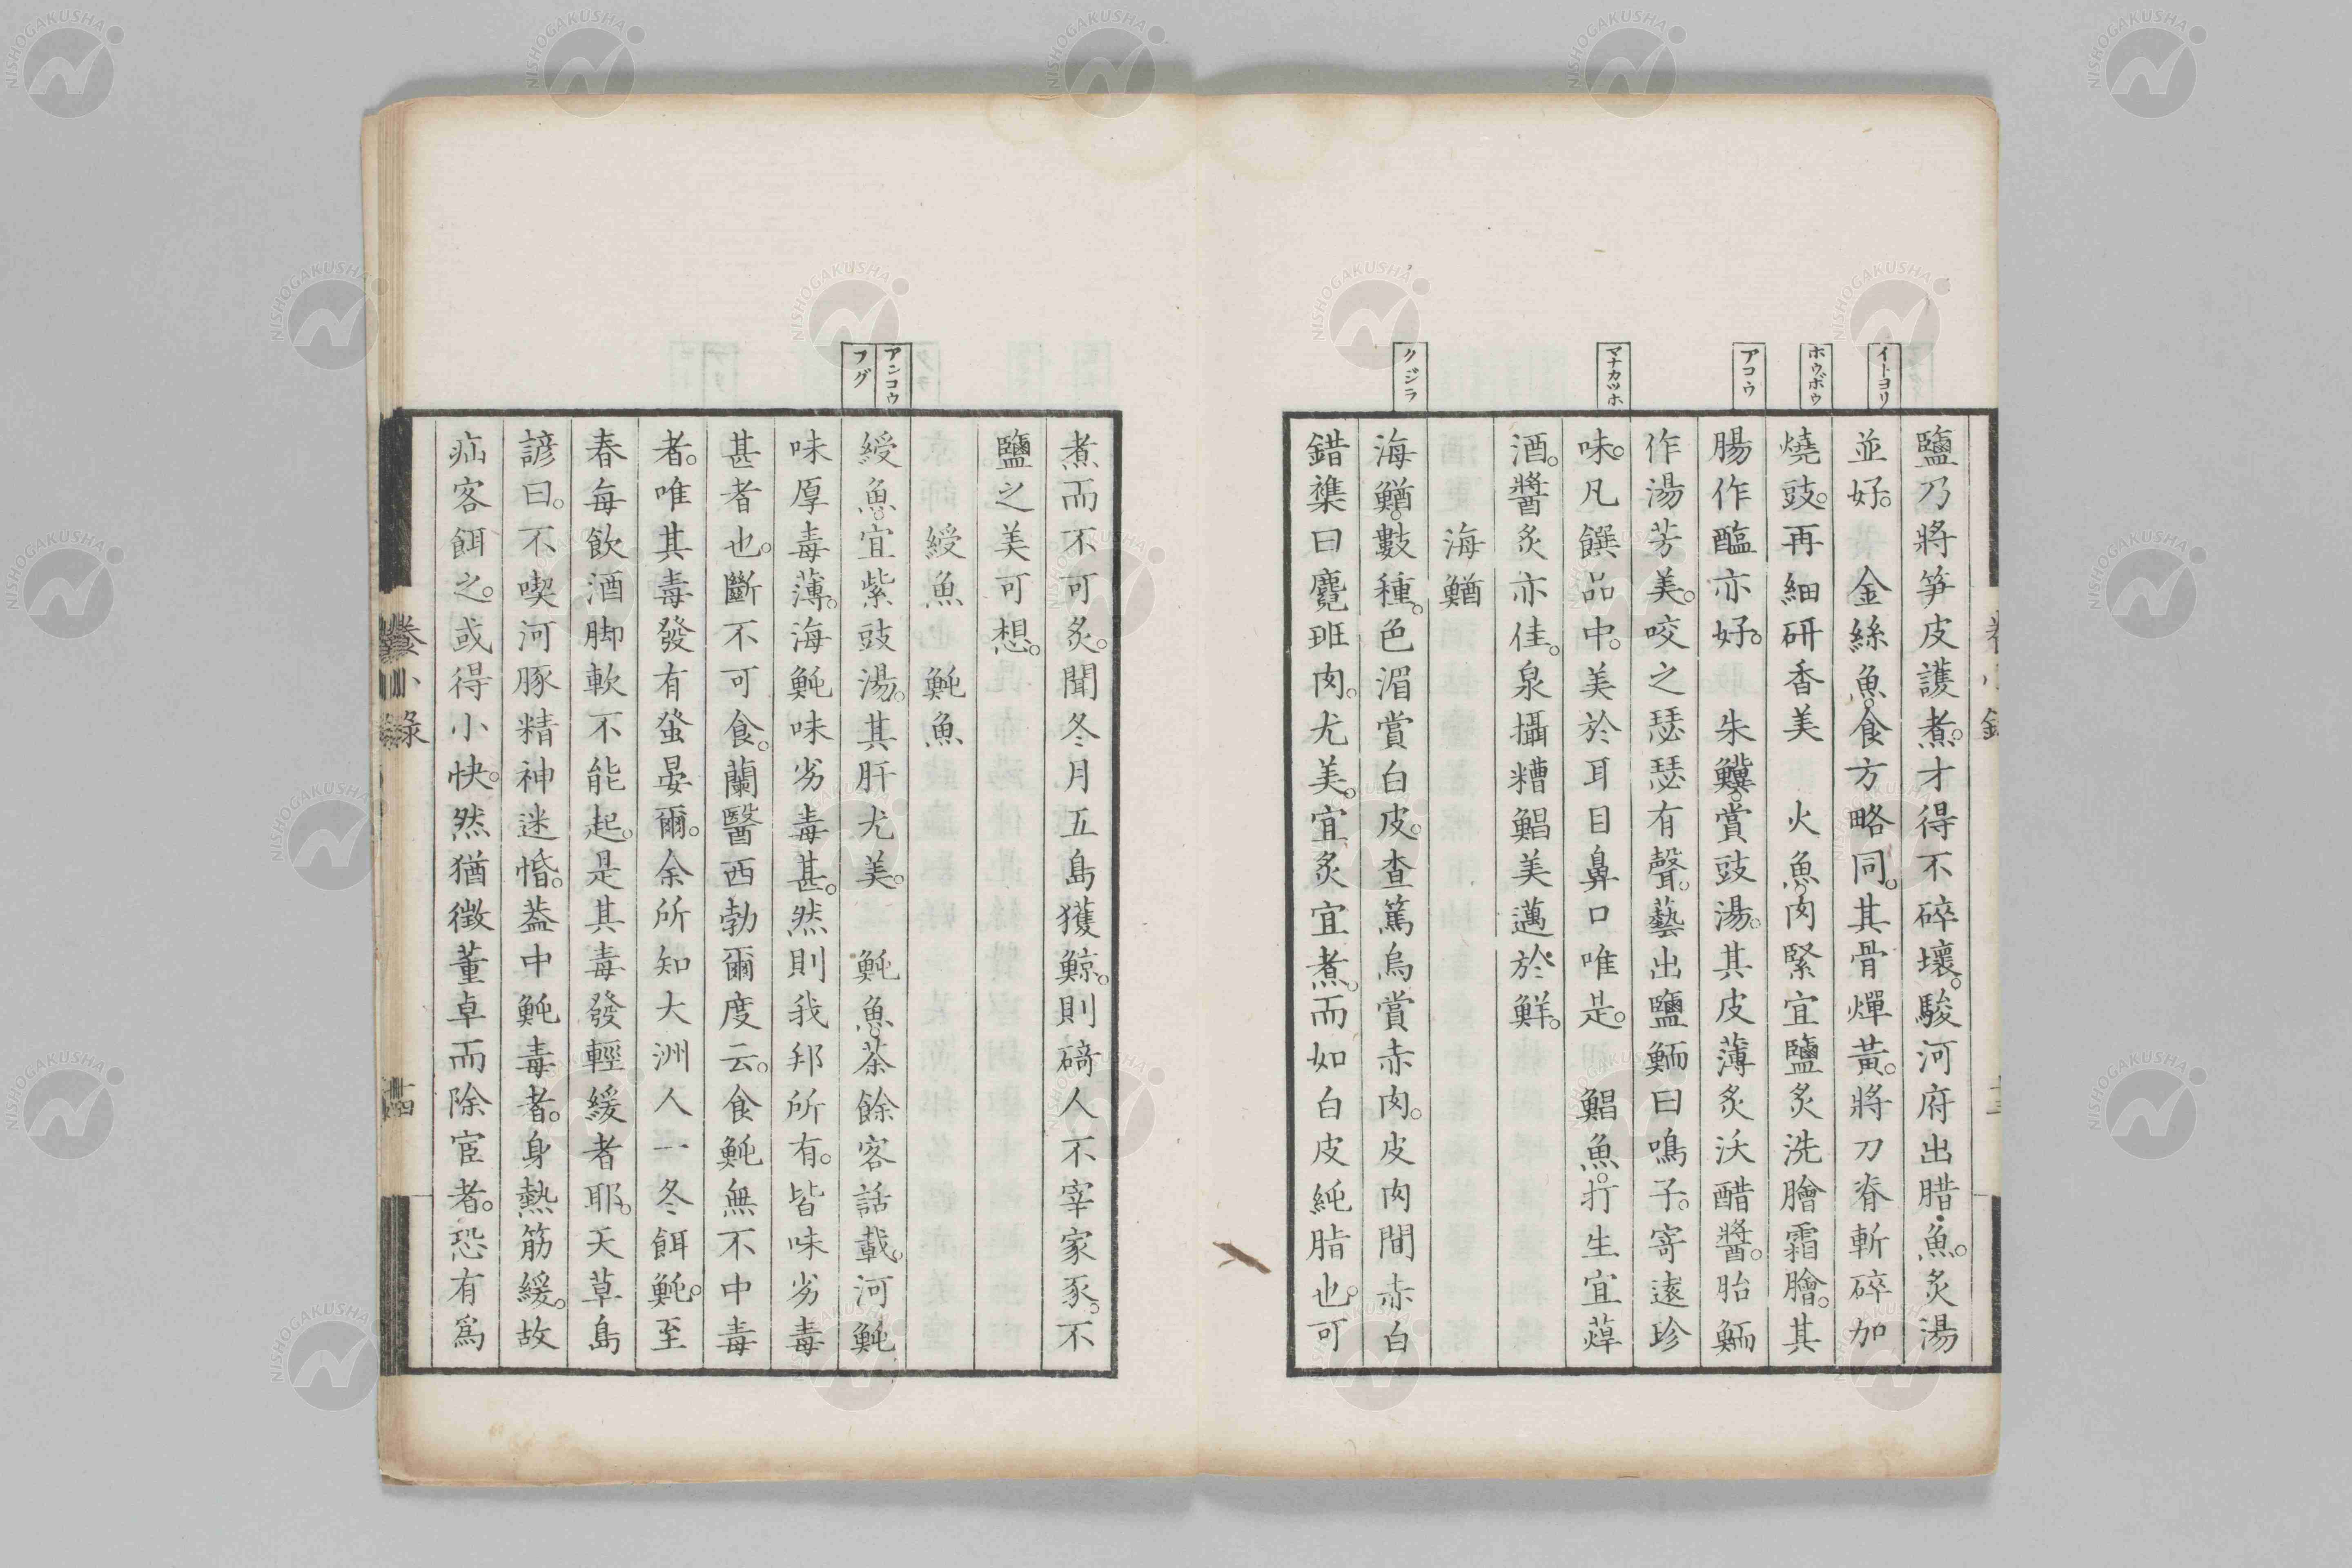 イトヨリ
ホウボウ
アコウ
マナカツホ
クジラ
鹽乃將笋皮護煮。才得不碎壞。駿河府出腊魚。炙湯
並好。　金絲魚。食方略同。其骨燀黃。將刀脊斬碎加
燒豉。再細研香美　火魚。肉緊宜鹽炙洗膾霜膾。其
腸作醢亦好。　朱鱵。賞豉湯。其皮薄炙沃醋醬。胎鮞
作湯芳美。咬之瑟瑟有聲。藝出鹽鮞曰鳴子。寄遠珍
味。凡饌品中。美於耳目鼻口唯是。　鯧魚。打生宜蕁
酒。醬炙亦佳。泉攝糟鯧美邁於鮮。
海鰌
海鰌。數種。色湄賞白皮。查篤烏賞赤肉。皮肉間赤白
錯襍曰麑班肉。尤美。宜炙宜煮。而如白皮純脂也。可
アンコウ
フグ
煮而不可炙。聞冬月五島獲鯨。則碕人不宰家豕。不
鹽之美可想。
綬魚　魨魚
綬魚。宜紫豉湯。其肝尤美。　魨魚。茶餘客話載。河魨
味厚毒薄。海魨味劣毒甚。然則我邦所有。皆味劣毒
甚者也。斷不可食。蘭醫西勃爾度云。食魨無不中毒
者。唯其毒發有蚤晏爾。余所知大洲人一冬餌魨。至
春每飲酒脚軟不能起。是其毒發輕緩者耶。天草島
諺曰。不喫河豚精神迷惛。葢中魨毒者。身熱筋緩。故
疝客餌之。或得小快。然猶徵董卓而除宦者。恐有爲
小錄